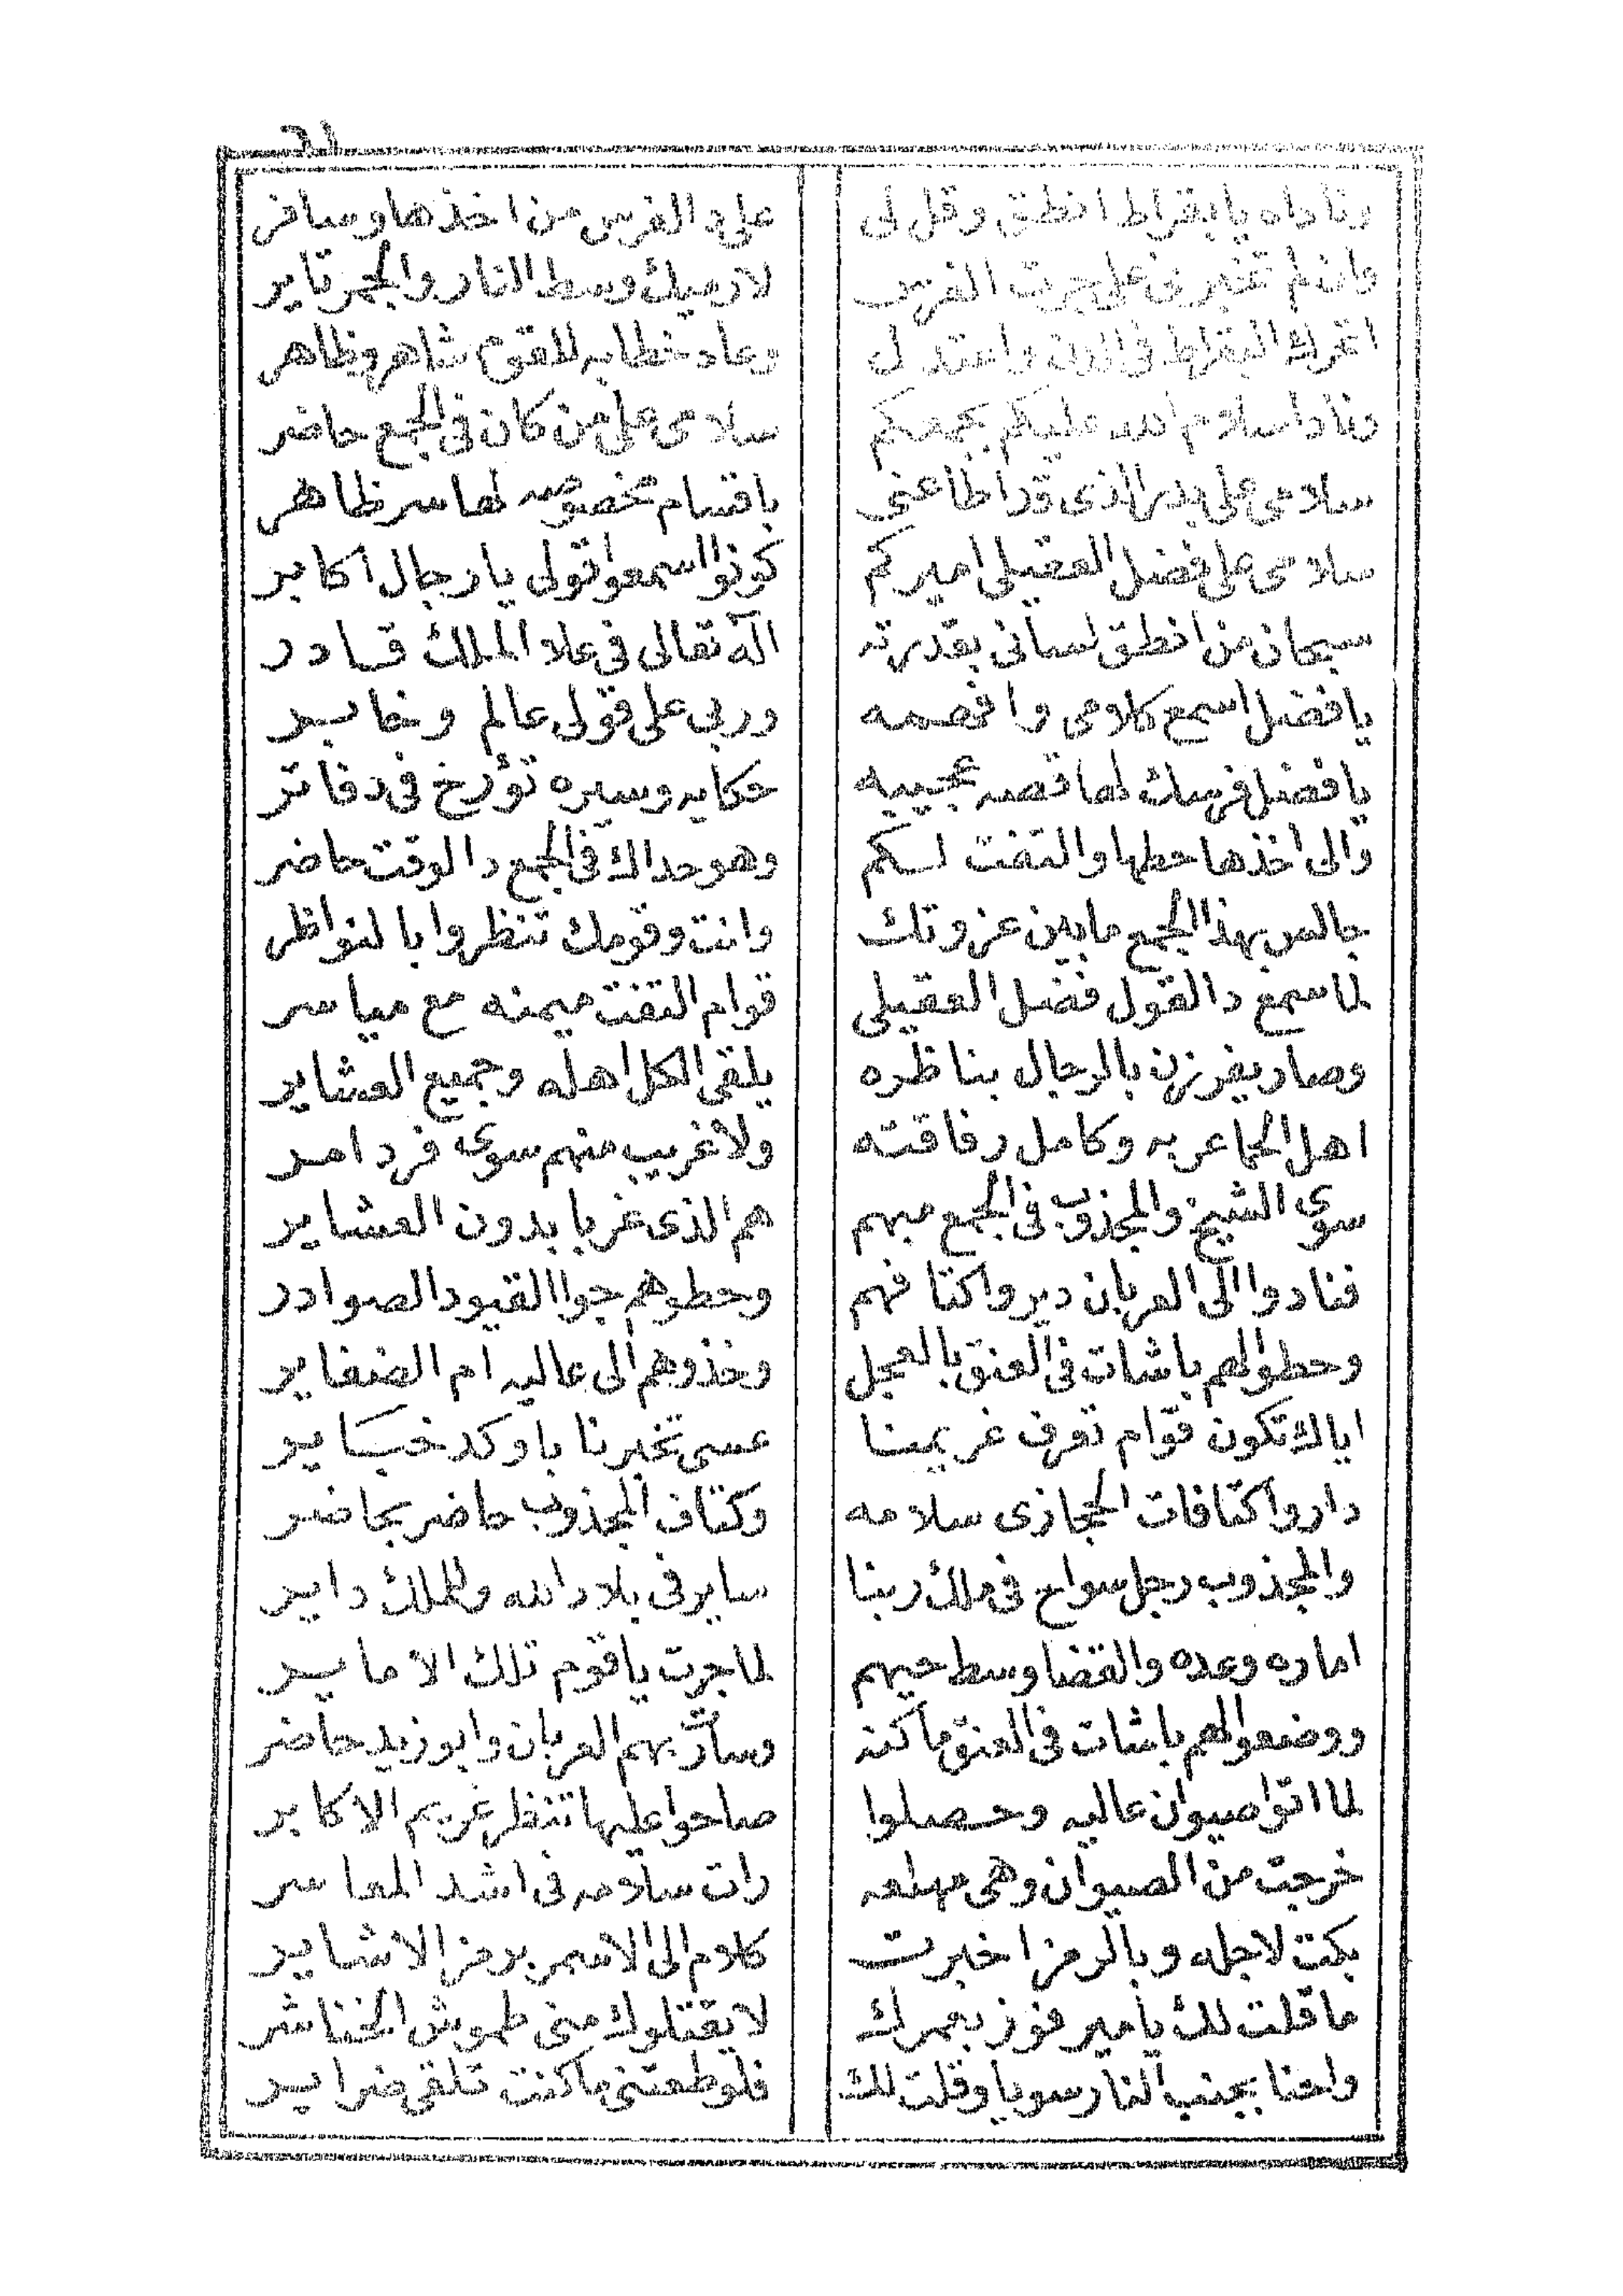 وناداه يا بقراط انطق وقل لى على د الفرس من اخذها وسافر
وان لم تخبرنى على جرت الفرس لارميك وسط النار والجمر تاير
اتحرك البقراط فى الوقت واعتدل وعاد خطابه للقوم شاهر وظاهر
ونادا سلام الله عليكم بجمعكم سلامى على من كان فى الجمع حاضر
سلامى على الذى قد اطاعنى باقسام مخصوصه لها سر ظاهر
سلامى على فضل العقيلى اميركم كونوا اسمعوا قولى يا رجال اكابر
سبحان من انطق لسانى بقدرته اله تعالى فى علا الملك قادر
يا فضل اسمع كلامى وافحصه وربى على قولى عالم وخابير
يا فضل فرسك لها قصه عجيبه حكايه وسيره تؤرخ فى دفاتر
والى اخذها حطها والتفت لكم وهو حداك فى الجمع د الوقت حاضر
جالس بهذا الجمع ما بين عزوتك وانت وقومك تنظروا بالنواظر
لما سمع د القول فضل العقيلى قوام التفت ميمنه مع مياسر
وصار يفرزن بالرجال بناظره يلقى الكل اهله وجميع العشاير
اهل الجماعربه وكامل رفاقته ولا غريب منهم سوى فرد امر
سوى الشيخ والمجذوب فى الجمع مبهم هم الذى غربا بدون العشاير
فنادوا الى العربان ديروا كتافهم وحطوهم جوا القيود الصوادر
وحطوا لهم باشات فى العنق بالعجل وخذوهم الى عاليه ام الضفاير
اياك تكون قوام تعرف غريمنا عسى تخبرنا باوكد خباير
داروا كتافات الحجازى سلامه وكتاف المجذوب حاضر بحاضر
والمجذوب رجل سواح فى ملك ربنا ساير فى بلاد الله وللملك داير
اماره وعده والقضا وسط حيهم لما جرت يا قوم تلك الامايير
ووضعوا لهم باشات فى العنق ماكنه وسارت بهم العربان وابو زيد حاضر
لما اتوا صيوان عاليه وحصلوا صاحوا عليها تنظر غريم الاكابر
خرجت من الصيوان وهى مهلعه رات سلامه فى اشد المعاسر
بكت لاجله وبالرمز اخبرت كلام الى الاسمر برمز الاشاير
ما قلت لك يا مير فوز بعمرك لا يقتلوك منى طموش الخناشر
واحنا بجنب النار سويا وقلت لك فلو طعتنى ما كنت تلقى ضرايير